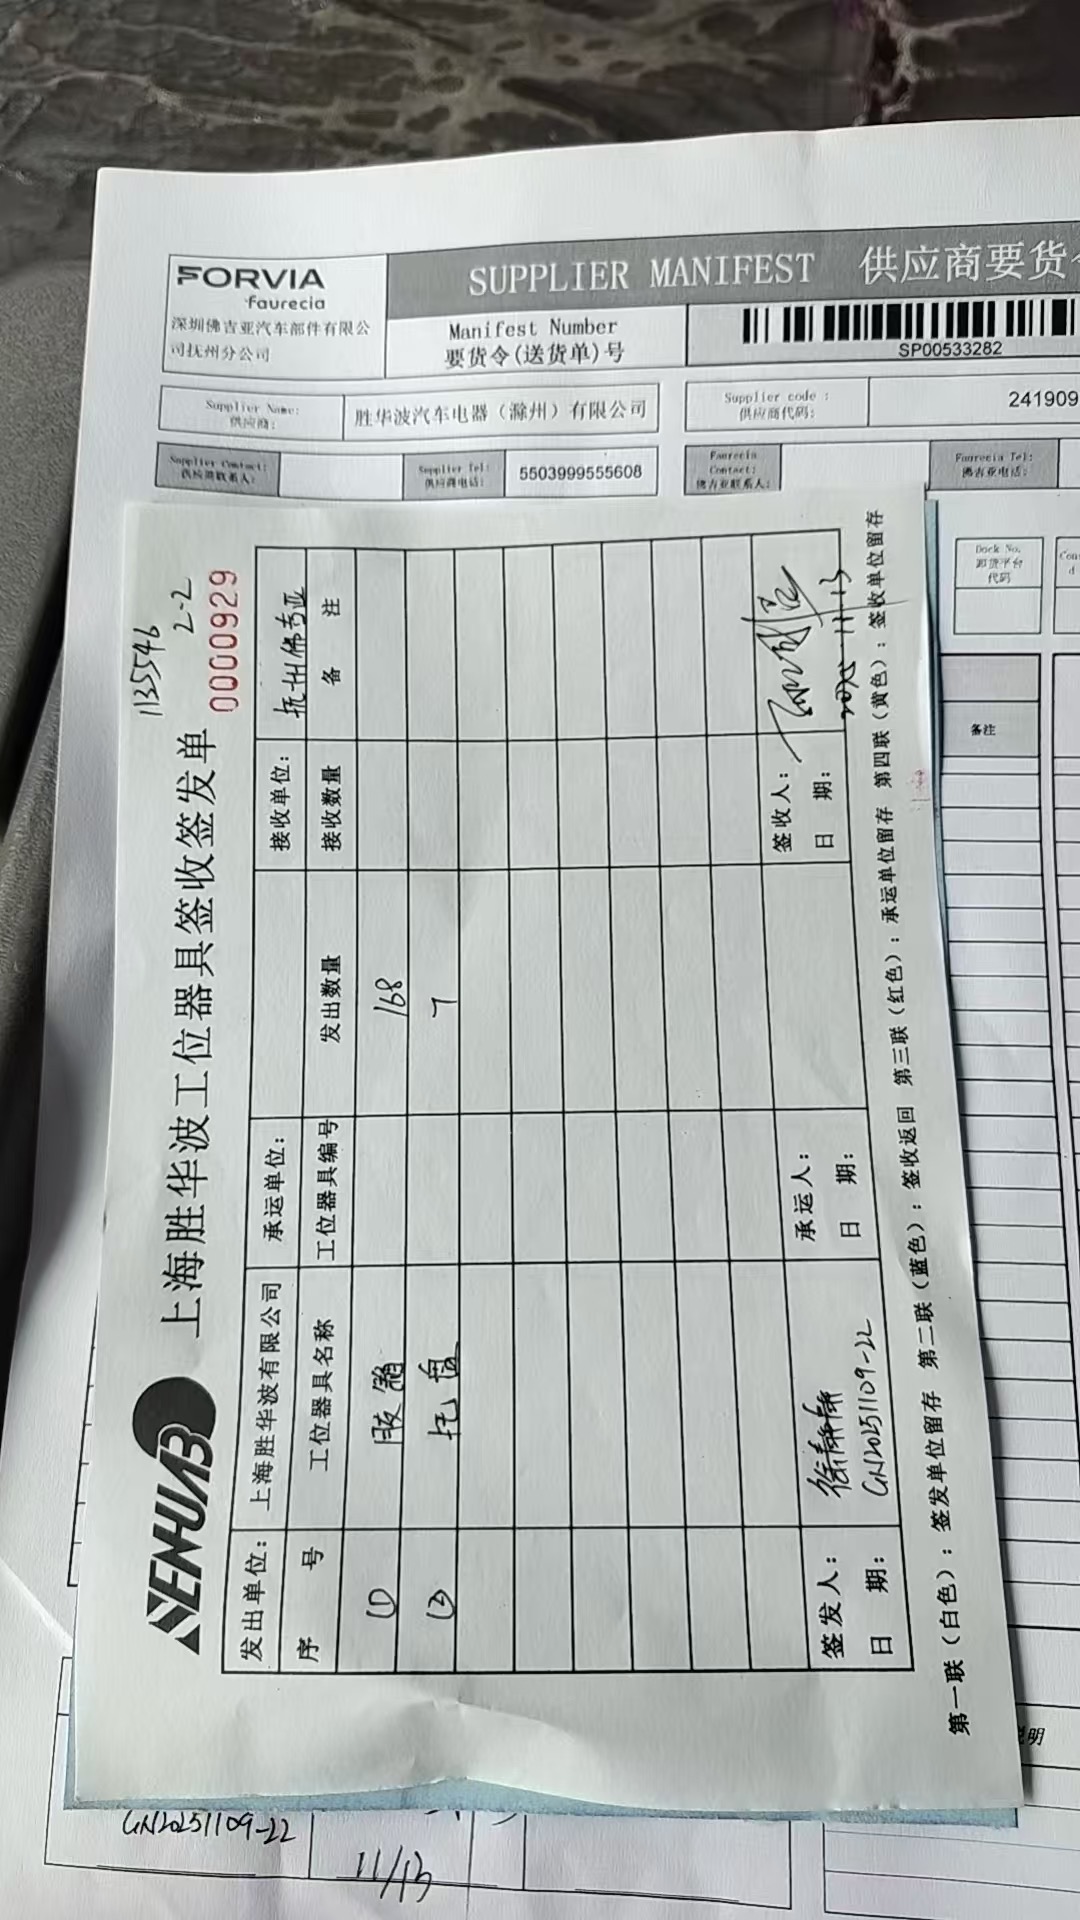 FORVIA
faurecia
深圳佛吉亚汽车部件有限公
司抚州分公司
SUPPLIER MANIFEST 供应商要货
Manifest Number
要货令(送货单)号
SP00533282
Supplier Name:
供应商:
胜华波汽车电器（滁州）有限公司
Supplier code :
供应商代码:
241909
Supplier Contact:
供应商联系人:
Supplier Tel:
供应商电话:
5503999555608
Faurecia
Contact:
佛吉亚联系人:
Faurecia Tel:
佛吉亚电话:
Dock No.
卸货平台
代码
备注
SENHUAB
上海胜华波工位器具签收签发单
1135546
2-2
0000929
发出单位: 上海胜华波有限公司 承运单位: 接收单位: 抚州佛吉亚
序号 工位器具名称 工位器具编号 发出数量 接收数量 备注
① 胶箱 168
② 托盘 7
签发人: 徐静静 承运人: 签收人:
日期: GN20251109-22 日期: 日期: 2025.11.13
第一联（白色）: 签发单位留存 第二联（蓝色）: 签收返回 第三联（红色）: 承运单位留存 第四联（黄色）: 签收单位留存
明
GN20251109-22
11/13